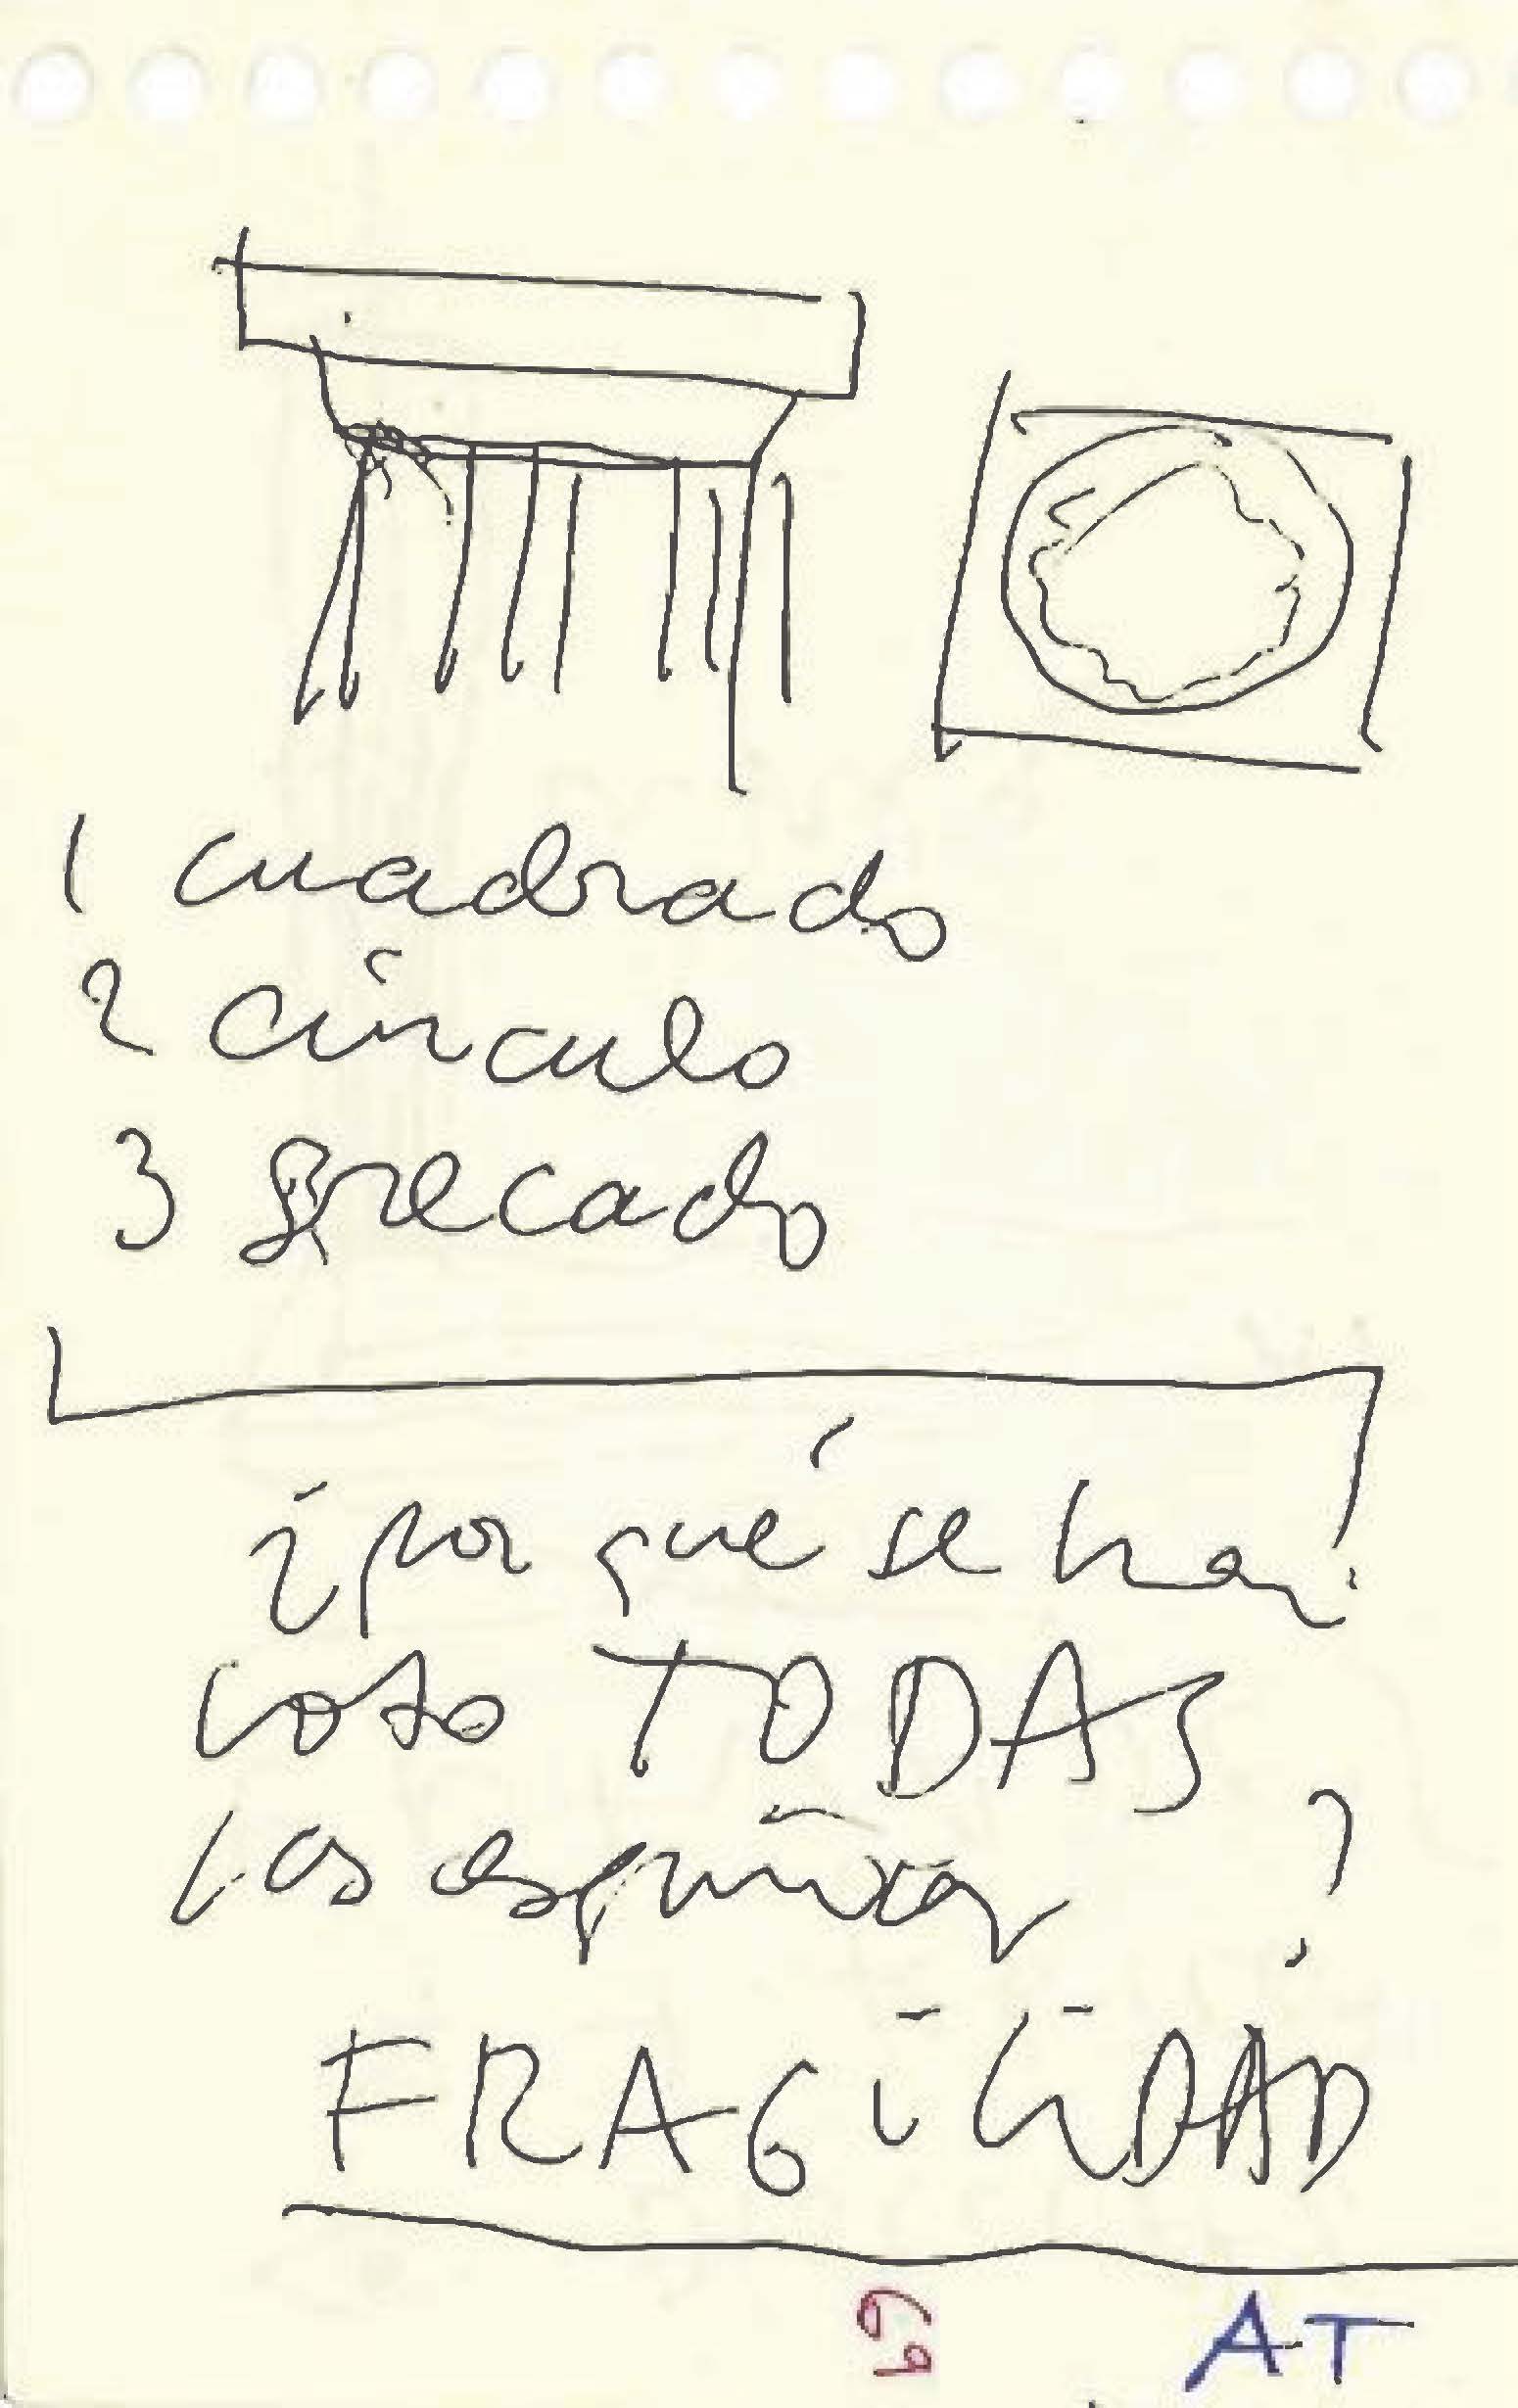 1 cuadrado
2 círculo
3 grecado
¿por qué se han
roto TODAS
las esquinas ?
FRAGILIDAD
69
AT